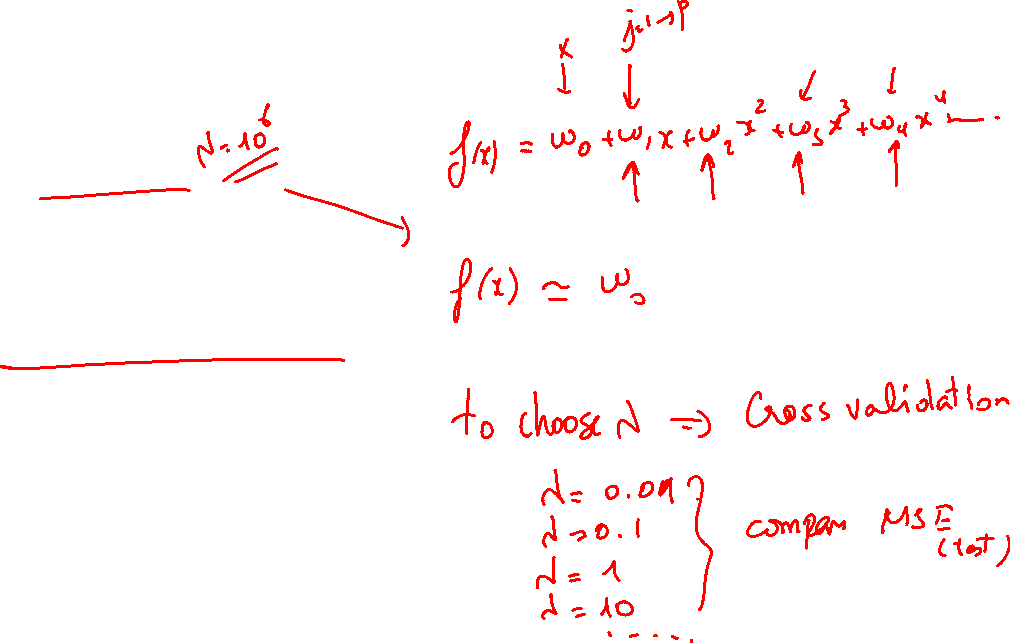 j=1→p
x
λ=10^6
f(x) = w₀ + w₁x + w₂x² + w₃x³ + w₄x⁴ ....
f(x) ≃ w₀
to choose λ ⇒ Cross validation
λ= 0.01
λ=0.1
λ= 1
compare MSE
(test)
λ= 10
.....